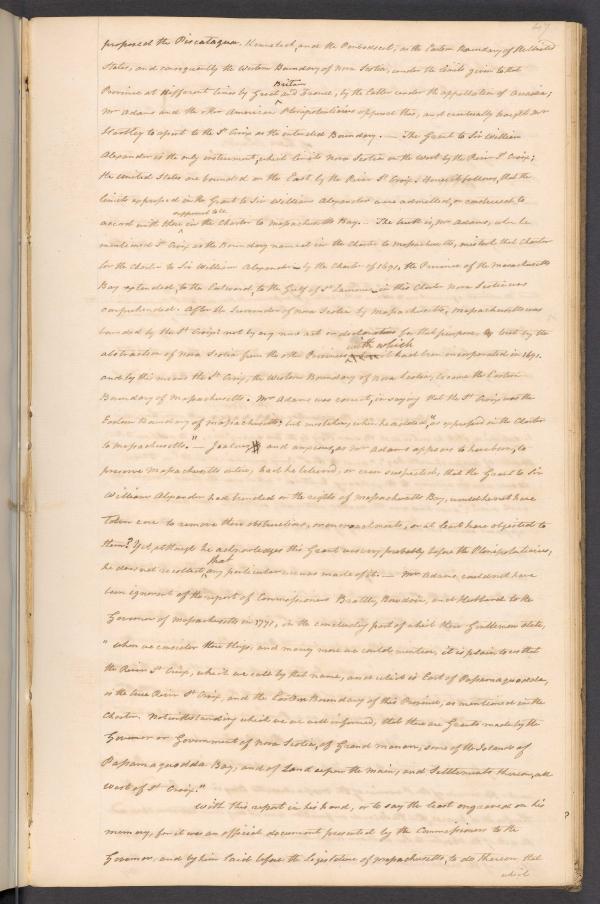 47
proposed the Piscataqua, Kennebeck, and the Penobscot, as the Eastern Boundary of the United
States, and consequently the Western Boundary of Nova Scotia, under the limits given to that
Province at different times by Great Britain and France, by the latter under the appellation of Acadia;
Mr Adams and the other American Plenipotentiaries opposed this, and eventually brought Mr
Hartley to assent to the St Croix as the intended Boundary. — The Grant to Sir William
Alexander is the only instrument, which limits Nova Scotia on the West by the River St Croix;
the United States are bounded on the East by the River St Croix. Hence it follows, that the
limits expressed in the Grant to Sir William Alexander were admitted, or construed to
accord with those supposed to be in the Charter to Massachusetts Bay. — The truth is, Mr Adams, when he
mentioned St Croix as the Boundary named in the Charter to Massachusetts, mistook that Charter
for the Charter to Sir William Alexander — by the Charter of 1691, the Province of the Massachusetts
Bay extended, to the Eastward, to the Gulf of St Lawrence — in this Charter Nova Scotia was
comprehended. After the Surrender of Nova Scotia by Massachusetts, Massachusetts was
bounded by the St Croix: not by any new act or declaration for that purpose, but by the
abstraction of Nova Scotia from the other Provinces with which it had been incorporated in 1691.
and by this means the St Croix, the Western Boundary of Nova Scotia, became the Eastern
Boundary of Massachusetts. Mr Adams was correct, in saying that the St Croix was the
Eastern Boundary of Massachusetts; but mistaken, when he added, "as expressed in the Charter
to Massachusetts." — Jealous and anxious, as Mr Adams appears to have been, to
preserve Massachusetts entire, had he believed, or even suspected, that the Grant to Sir
William Alexander had trenched on the rights of Massachusetts Bay, would he not have
taken care to remove these obstructions, or encroachments, or at least have objected to
them? Yet, although he acknowledges this Grant was very probably before the Plenipotentiaries,
he does not recollect that any particular use was made of it. — Mr Adams could not have
been ignorant of the report of Commissioners Brattle, Bowdoin, and Hubbard to the
Governor of Massachusetts in 1771, in the concluding part of which these Gentlemen state,
"when we consider these things, and many more we could mention, it is plain to us that
the River St Croix, which we call by that name, and which is East of Passamaquodda,
is the true River St Croix, and the Eastern Boundary of this Province, as mentioned in the
Charter. Notwithstanding which we are well informed, that there are Grants made by the
Governor or Government of Nova Scotia, of Grand Manan, some of the Islands of
Passamaquodda Bay, and of Land upon the main, and Settlements thereon, all
West of St Croix."
With this report in his hand, or to say the least engraved on his
memory, for it was an official document presented by the Commissioners to the
Governor, and by him laid before the Legislature of Massachusetts, to do thereon that
which